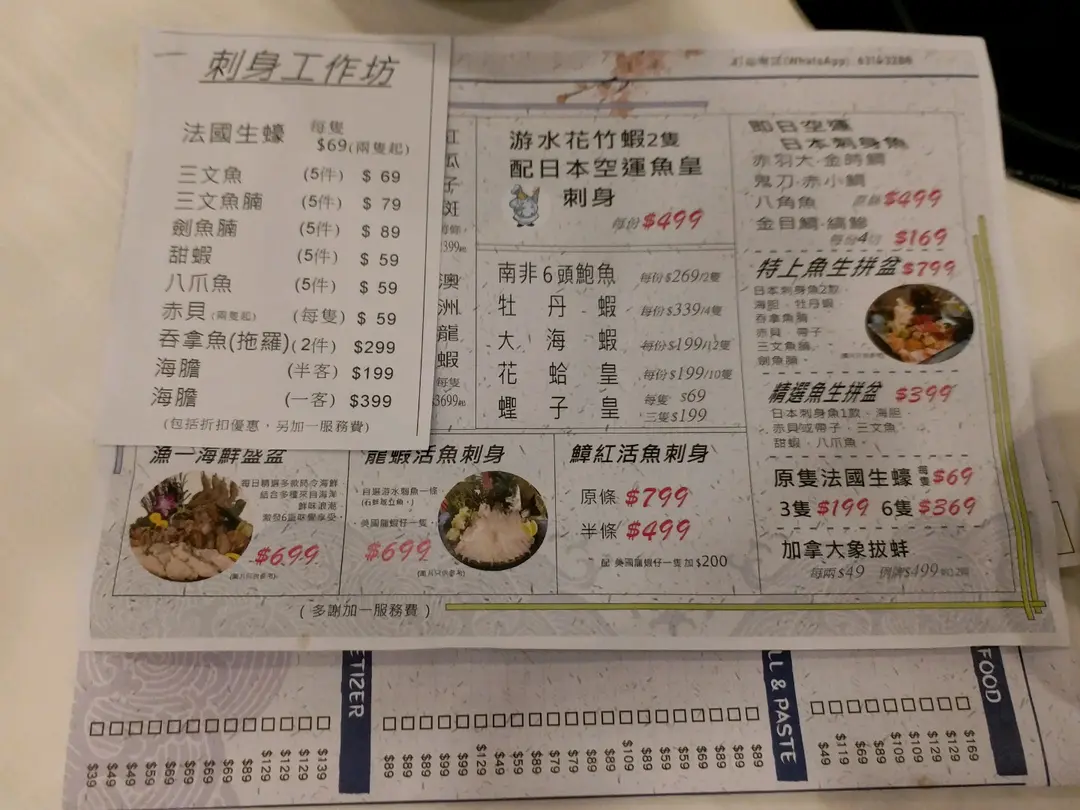 刺身工作坊
法國生蠔 每隻 $69(兩隻起)
三文魚 (5件) $ 69
三文魚腩 (5件) $ 79
劍魚腩 (5件) $ 89
甜蝦 (5件) $ 59
八爪魚 (5件) $ 59
赤貝(兩隻起) (每隻) $ 59
吞拿魚(拖羅)(2件) $299
海膽 (半客) $199
海膽 (一客) $399
(包括折扣優惠，另加一服務費)
(WhatsApp) 62163288
紅
瓜
子
斑
$399起
澳
洲
龍
蝦
每隻
$699起
游水花竹蝦2隻
配日本空運魚皇
刺身
每份$499
南非6頭鮑魚 每份$269/2隻
牡丹蝦 每份$339/4隻
大海蝦 每份$199/12隻
花蛤皇 每份$199/10隻
蟶子皇 每隻 $69
三隻$199
即日空運
日本刺身魚
赤羽太·金時鯛
鬼刀·赤小鯛
八角魚 原條$499
金目鯛·縞鰺
每份4切 $169
特上魚生拼盆$799
日本刺身魚2款、
海胆、牡丹蝦、
吞拿魚腩、
赤貝、帶子、
三文魚腩、
劍魚腩。
(圖片只供參考)
精選魚生拼盆 $399
日本刺身魚1款、海胆、
赤貝或帶子、三文魚、
甜蝦、八爪魚。
原隻法國生蠔 每隻$69
3隻$199 6隻$369
加拿大象拔蚌
每兩$49
漁一海鮮盛盆
每日精選多款時令海鮮
結合多種來自海洋
鮮味浪潮
激發6重味覺享受。
$699
(圖片只供參考)
龍蝦活魚刺身
自選游水鯛魚一條、
英國龍蝦仔一隻。
$699
(圖片只供參考)
鱆紅活魚刺身
原條 $799
半條 $499
配 英國龍蝦仔一隻 加$200
(多謝加一服務費)
ETIZER
LL & PASTE
FOOD
$39
$49
$49
$59
$69
$69
$69
$69
$89
$129
$129
$129
$139
$89
$89
$89
$99
$99
$129
$49
$59
$89
$79
$79
$89
$89
$109
$89
$89
$59
$69
$89
$89
$89
$49
$119
$69
$89
$109
$109
$129
$129
$169